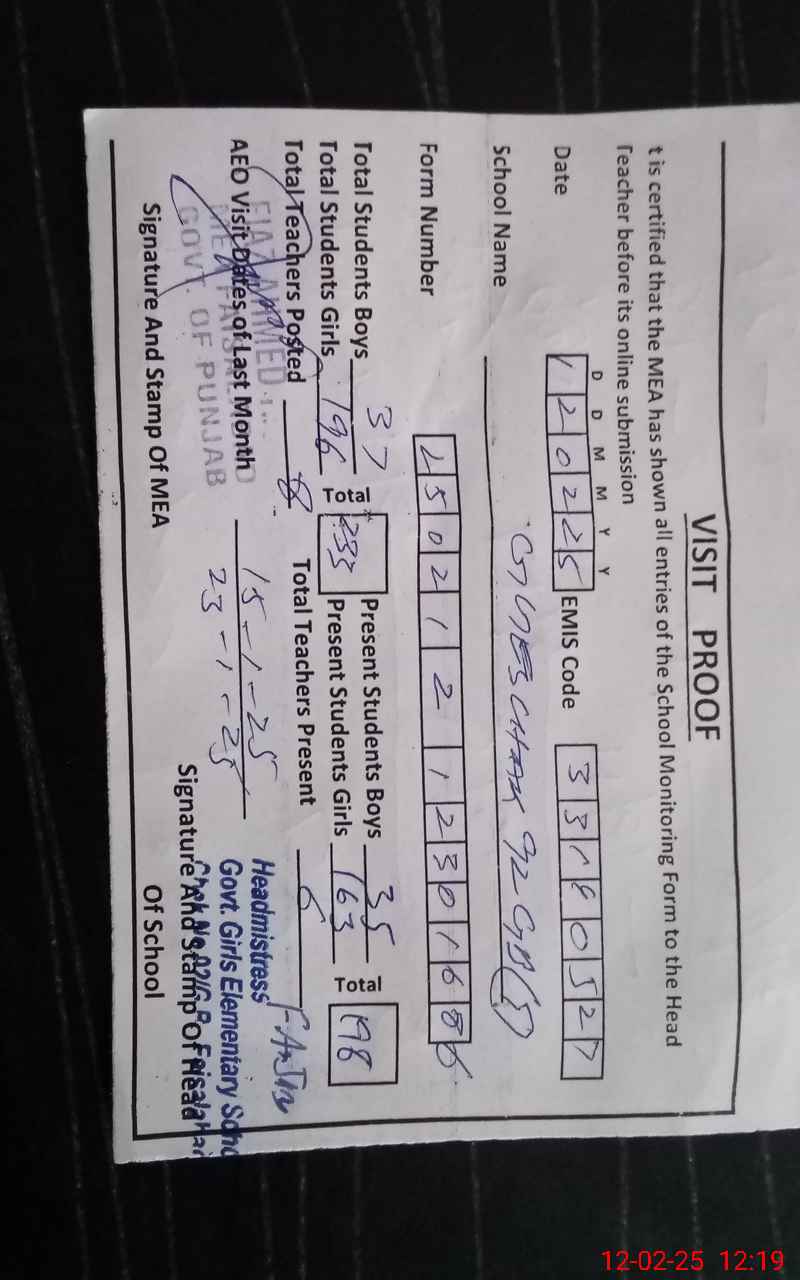 VISIT PROOF
t is certified that the MEA has shown all entries of the School Monitoring Form to the Head
Teacher before its online submission
D D M M Y Y
Date 1 2 0 2 2 5 EMIS Code 3 3 1 8 0 5 2 7
School Name GGES CHAK 92 GB (S)
Form Number 1 5 0 2 1 2 1 2 3 0 1 6 8
Total Students Boys 37 Total 233 Present Students Boys 35 Total 198
Total Students Girls 196 Present Students Girls 163
Total Teachers Posted 8 Total Teachers Present 6
AEO Visit Dates of Last Month 15-1-25
23-1-25
AHMED
GOVT. OF PUNJAB
Signature And Stamp Of MEA
Headmistress
Govt. Girls Elementary Scho
Signature And Stamp Of Head
Of School
12-02-25 12:19